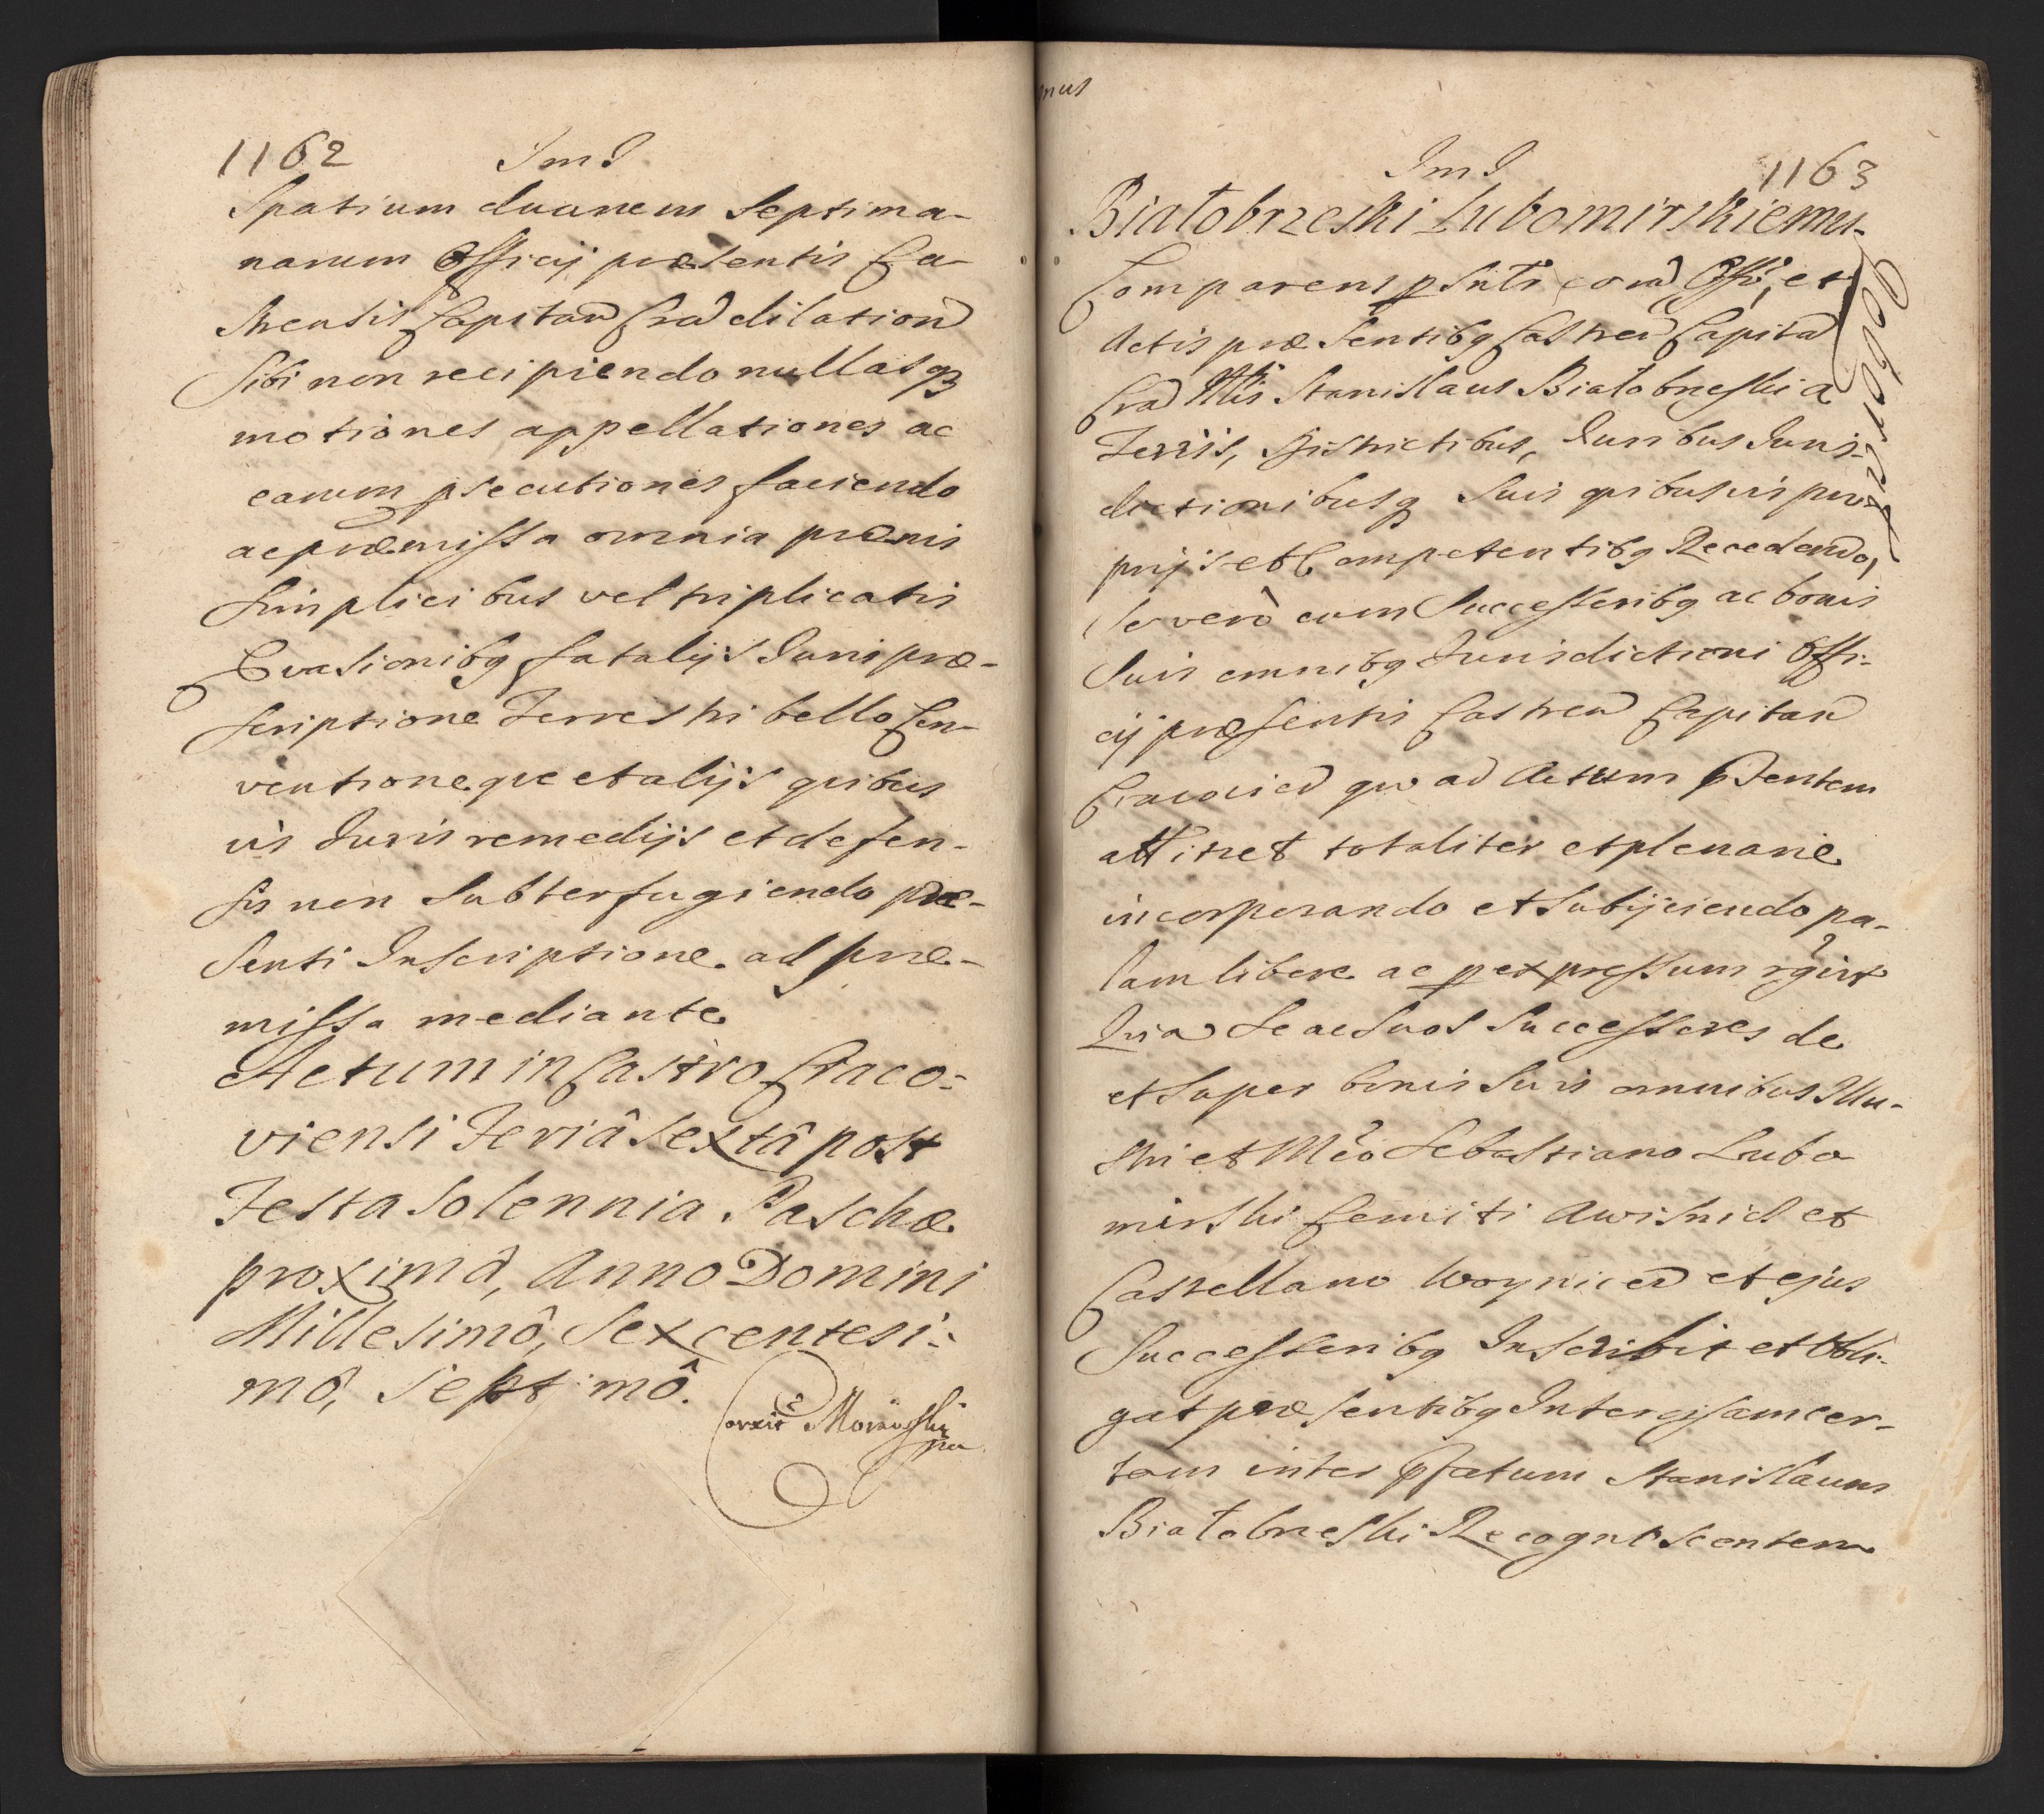 1162 Im I
Spatium duarum Septima-
narum Officij præsentis Ca-
strensis Capitan Crac dilation
Sibi non recipiendo nullasq3
motiones appellationes ac
earum psecutiones faciendo
ac præmissa omnia pænis
Simplicibus vel triplicatis
Evasionibq fatalijs Juris præ-
scriptione Terrestri bello Con-
ventioneque et alijs quibus
vis Juris remedijs et defen-
sis non Subterfugiendo præ-
Senti Inscriptione ad præ-
missa mediante
Actum in Castro Craco-
viensi Feriâ Sextâ post
Festa Solennia Paschæ
proximâ, Anno Domini
Millesimô, Sexcentesi-
mô, Septimô.
Correxit
mus
Im I 1163
Białobrzeski Lubomirskiemu
Comparens psntr corã Offo, et
Actis præsentibq Castren Capitan
Crac Mlis Stanislaus Białobrzeski a
Terris, Districtibus, Juribus Juris-
dictionibusq Suis quibusvis pro-
prijs et Competentibq Recedendo,
Se verò cum Successoribq ac bonis
Suis omnibq Jurisdictioni Offi-
cij præsentis Castren Capitan
Cracovien quo ad Actum pntem
attinet totaliter et plenarie
incorporando et Subijciendo pa-
lam libere ac p expressum rgvit
Quia Se ac Suos Successores de
et Super bonis Suis omnibus Illu-
stri et Mco Sebastiano Lubo
mirski Comiti a Wisnic et
Castellano Woynicen et ejus
Successoribq Inscribit et Obli-
gat præsentibq Intercisam cer-
tam inter pfatum Stanislaum
Białobrzeski Recognoscentem